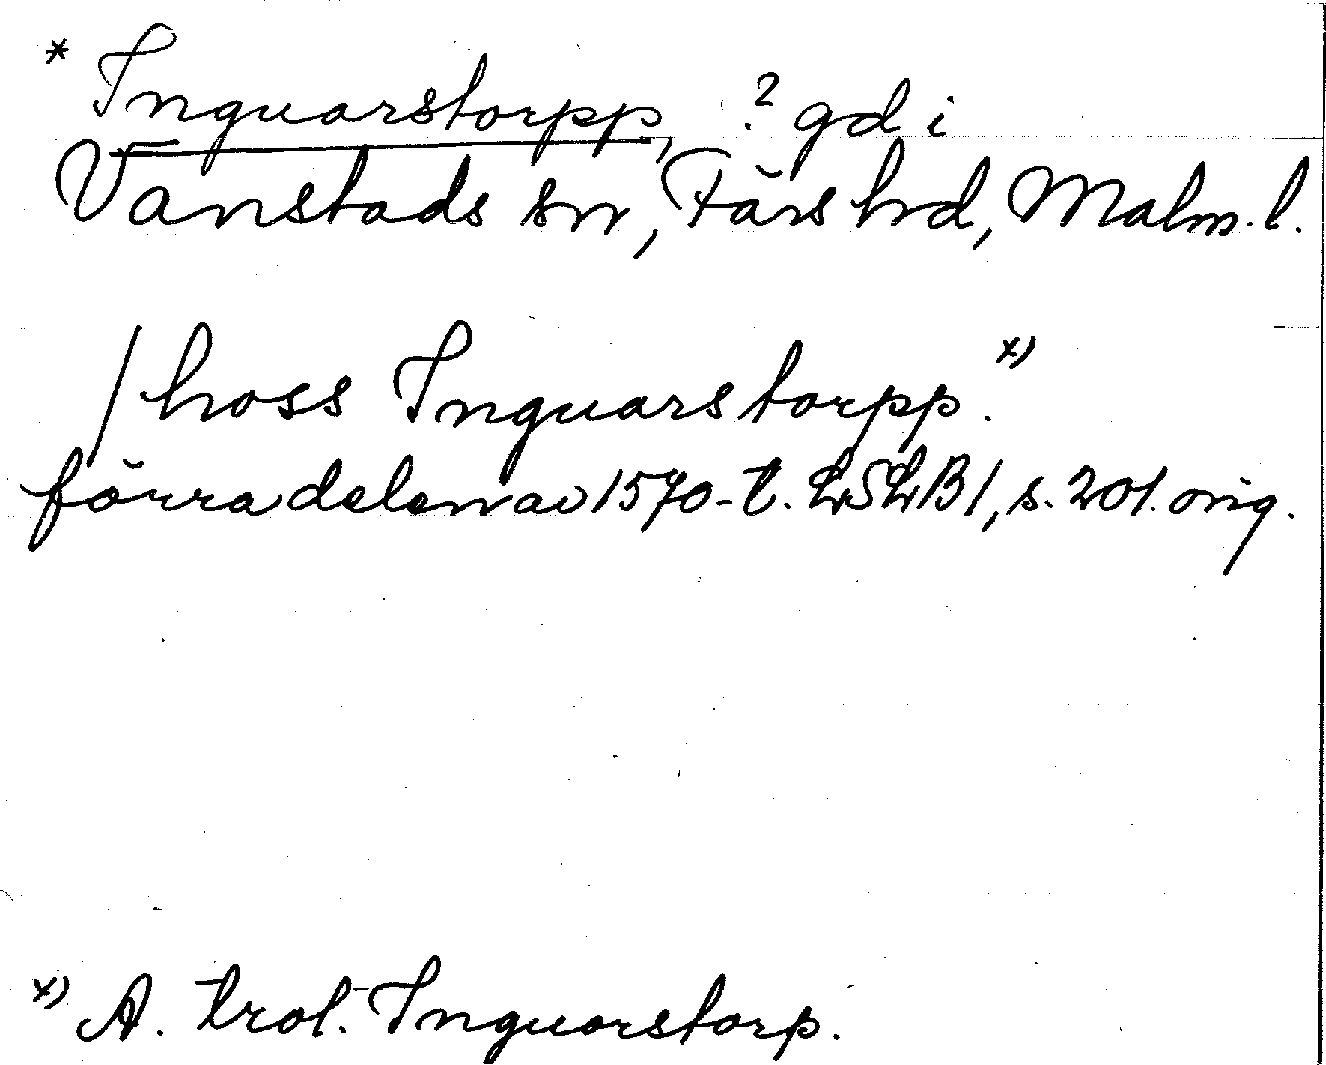 * Inguarstorpp, ? gd i
Vanstads sn, Färs hrd, Malm. l.
/ hoss Inguarstorpp. x)
förra delen av 1570-t. LSLB 1, s. 201. orig.
x) A. trol. Inguorstorp.